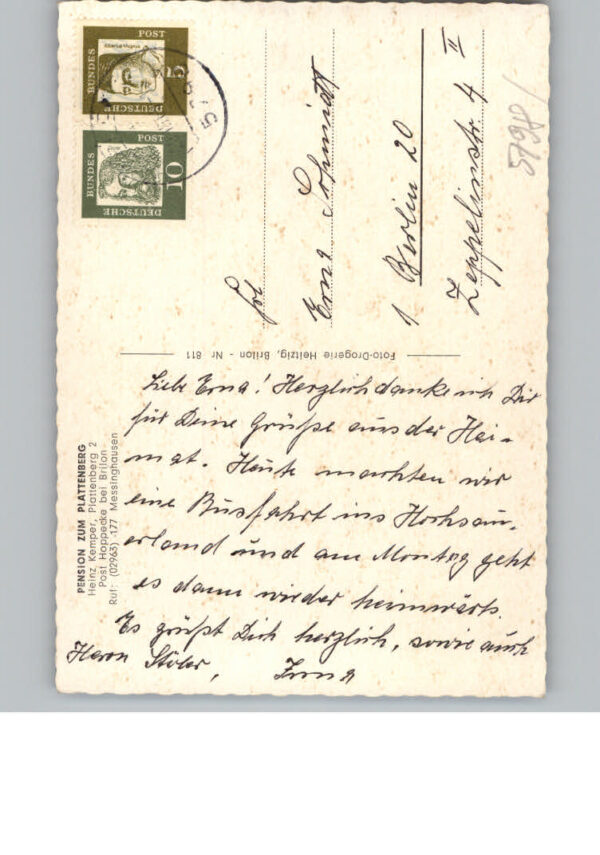 PENSION ZUM PLATTENBERG
Heinz Kemper, Plattenberg 2
Post Hoppecke bei Brilon
Ruf: (02963) -177 Messinghausen
Liebe Erna! Herzlich danke ich Dir
für Deine Grüße aus der Hei-
mat. Heute machten wir
eine Busfahrt ins Hochsau-
erland und am Montag geht
es dann wieder heimwärts.
Es grüßt Dich herzlich, sowie auch
Herrn
Foto-Drogerie Heitzig, Brilon - Nr 811
DEUTSCHE
BUNDES
POST
5
DEUTSCHE
BUNDES
POST
10
Erna Schmidt
1 Berlin 20
Zeppelinstr. 4 II